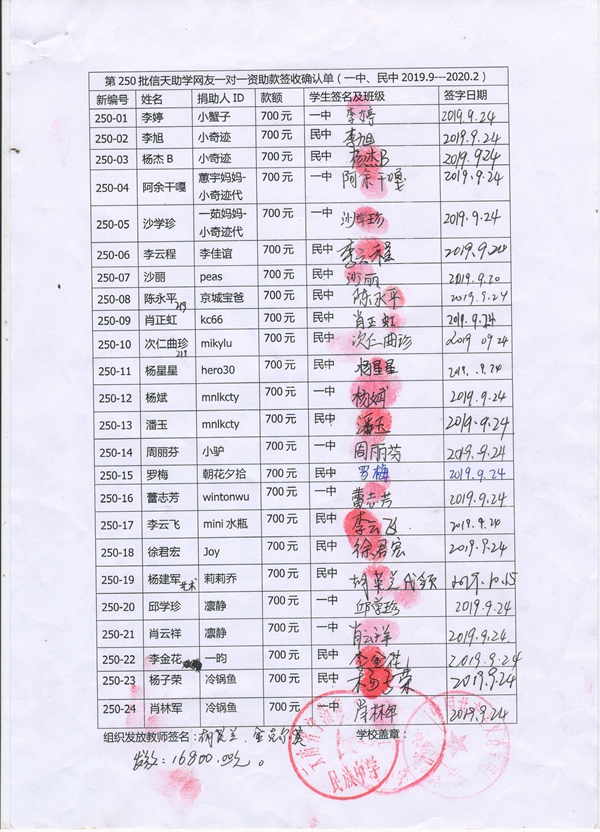 第 250 批信天助学网友一对一资助款签收确认单（一中、民中 2019.9---2020.2）
新编号 姓名 捐助人 ID 款额 学生签名及班级 签字日期
250-01 李婷 小蟹子 700 元 一中 李婷 2019.9.24
250-02 李旭 小奇迹 700 元 民中 李旭 2019.9.24
250-03 杨杰 B 小奇迹 700 元 民中 杨杰B 2019.924
250-04 阿余干嘎 蕙宇妈妈-小奇迹代 700 元 一中 阿余干嘎 2019.9.24
250-05 沙学珍 一茹妈妈-小奇迹代 700 元 一中 沙学珍 2019.9.24
250-06 李云程 李佳谊 700 元 民中 李云程 2019.9.24
250-07 沙丽 peas 700 元 民中 沙丽 2019.9.20
250-08 陈永平 219 京城宝爸 700 元 民中 陈永平 2019.9.24
250-09 肖正虹 kc66 700 元 民中 肖正虹 2019.9.24
250-10 次仁曲珍 219 mikylu 700 元 民中 次仁曲珍 2019 09 24
250-11 杨星星 hero30 700 元 民中 杨星星 2019..9.24
250-12 杨斌 mnlkcty 700 元 一中 杨斌 2019.9.24
250-13 潘玉 mnlkcty 700 元 民中 潘玉 2019.9.24
250-14 周丽芬 小驴 700 元 一中 周丽芬 2019.9.24
250-15 罗梅 朝花夕拾 700 元 民中 罗梅 2019.9.24
250-16 蕾志芳 wintonwu 700 元 一中 蕾志芳 2019.9.24
250-17 李云飞 mini 水瓶 700 元 民中 李云飞 2019.9.24
250-18 徐君宏 Joy 700 元 民中 徐君宏 2019.9.24
250-19 杨建军 艺术 莉莉乔 700 元 民中 代领 2019.10.15
250-20 邱学珍 凛静 700 元 一中 邱学珍 2019.9.24
250-21 肖云祥 凛静 700 元 一中 肖云祥 2019.9.24
250-22 李金花 一昀 700 元 民中 李金花 2019.9.24
250-23 杨子荣 冷锅鱼 700 元 民中 杨子荣 2019.9.24
250-24 肖林军 冷锅鱼 700 元 民中 肖林军 2019.9.24
组织发放教师签名： 学校盖章：
16800.00元。
民族中学